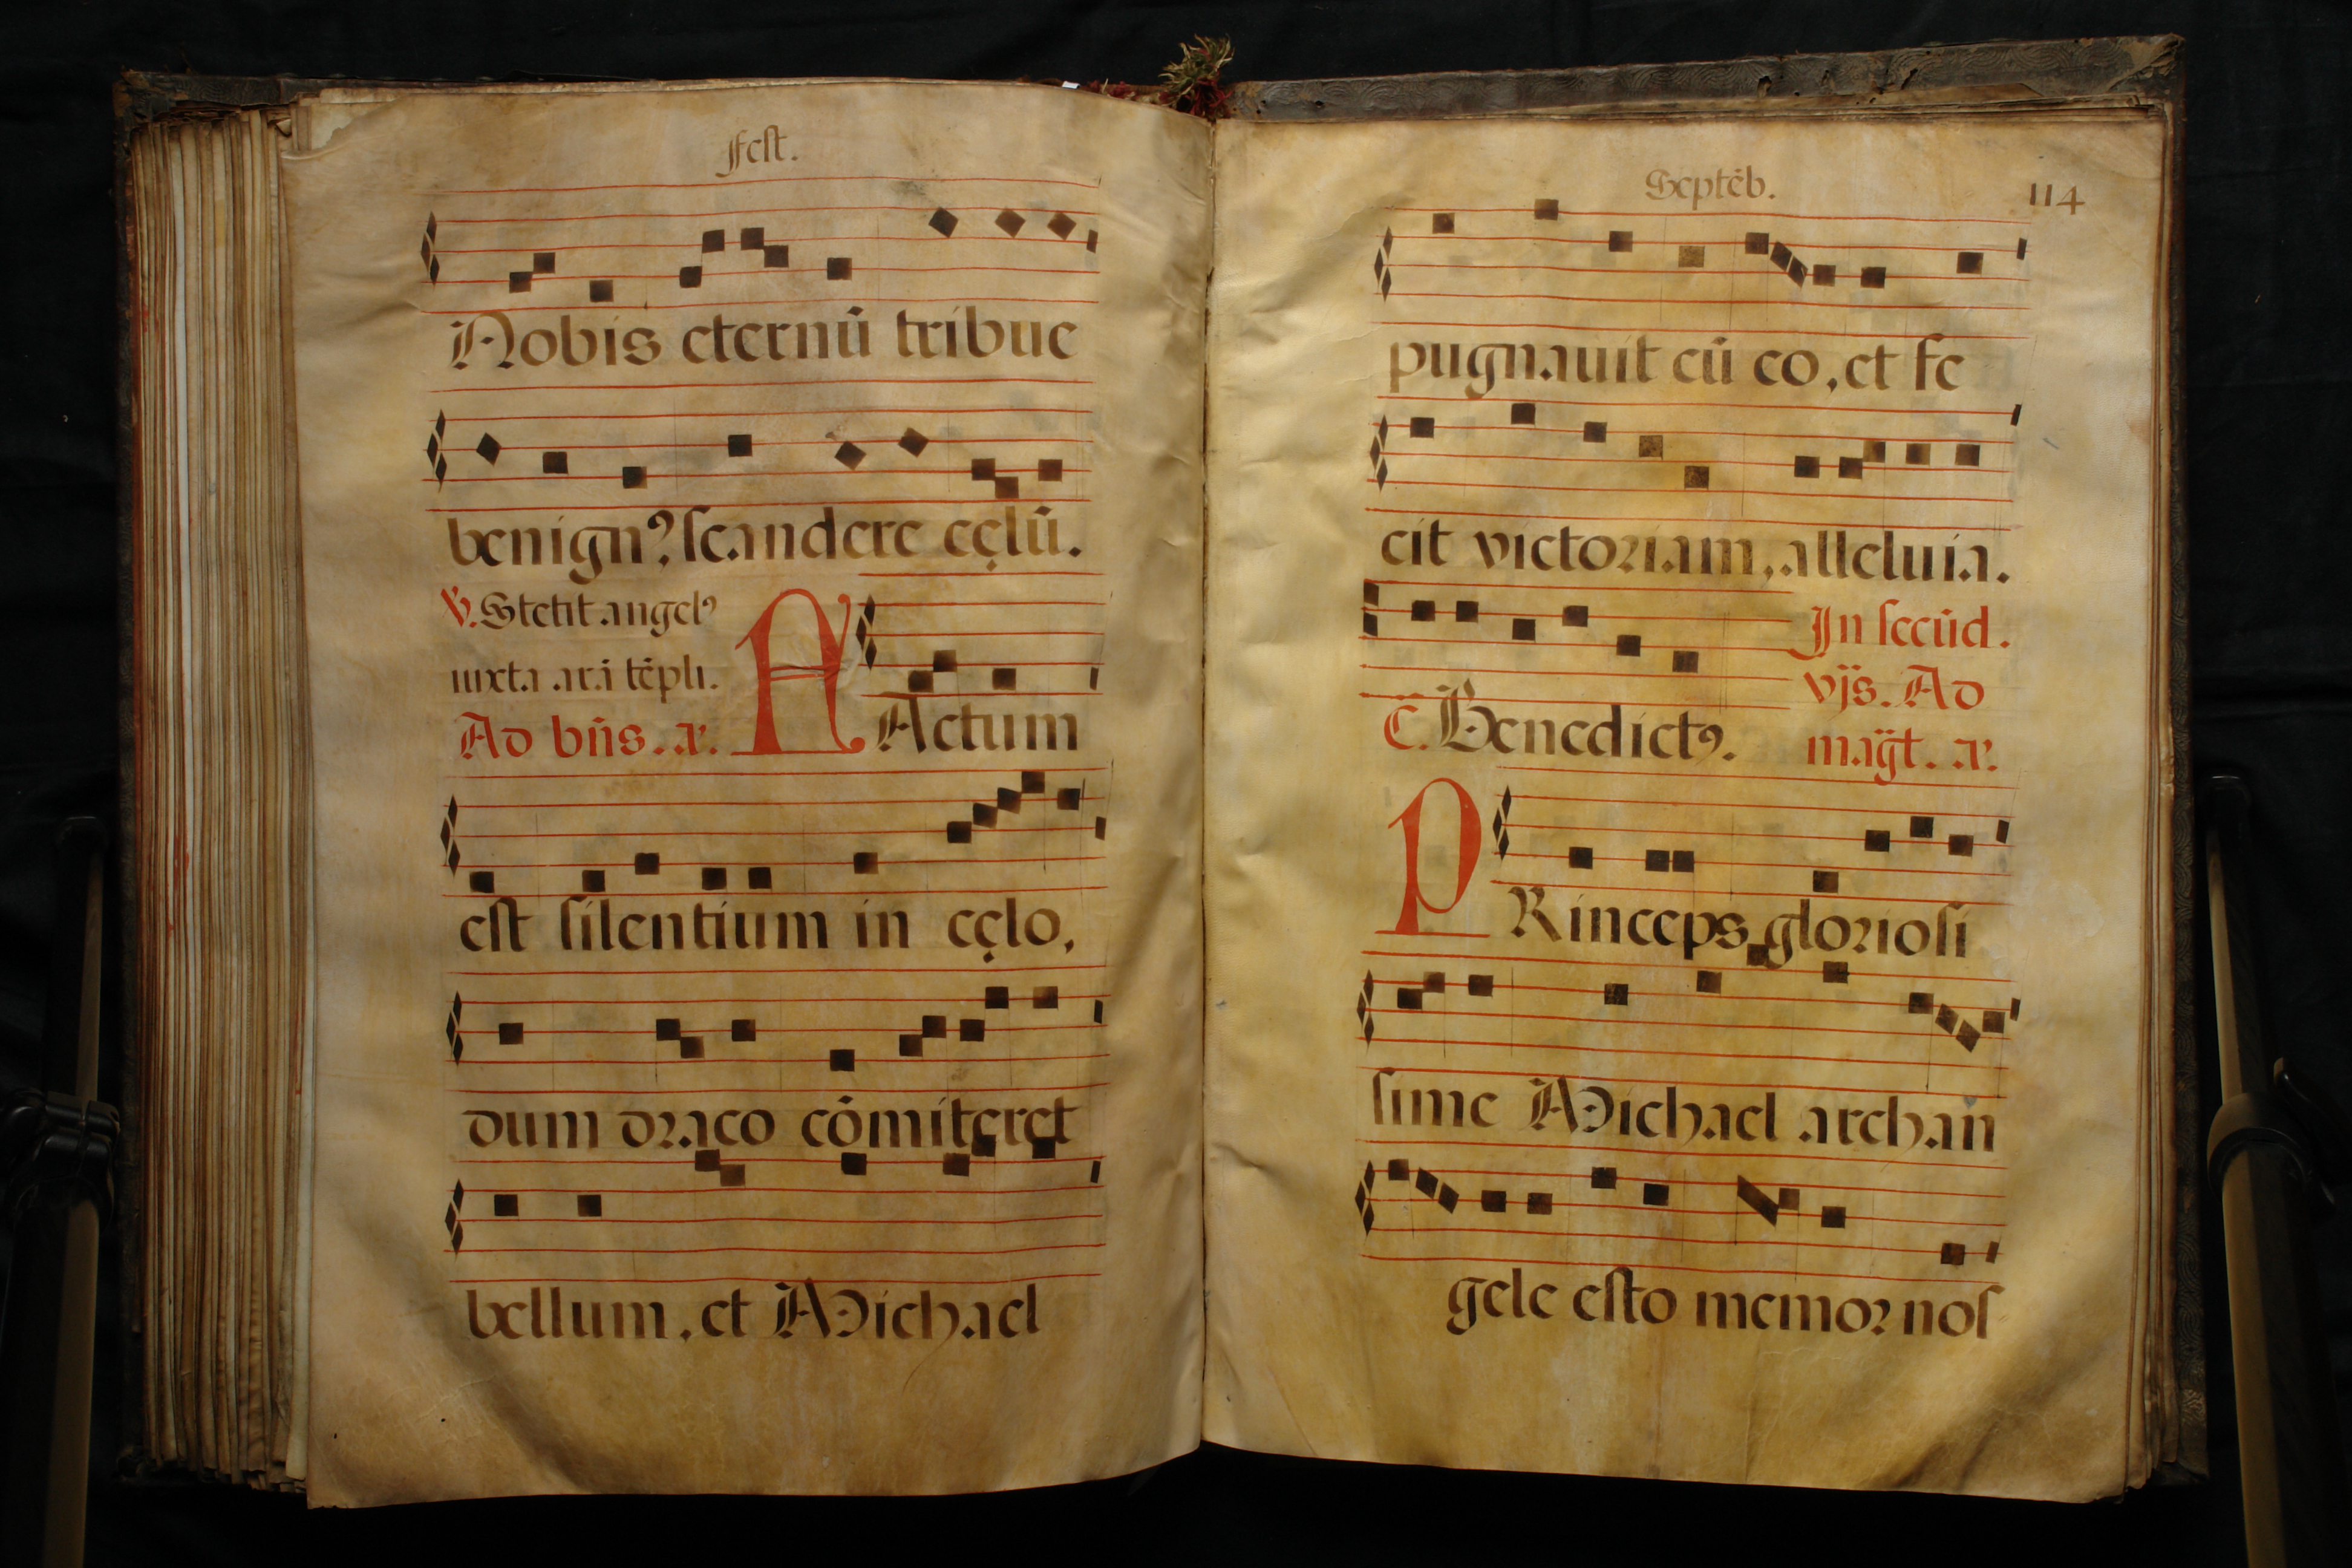 fest.
Nobis eternū tribue
benignꝰ scandere cęlū.
℣. Stetit angelꝰ
iuxta arā tēpli.
Ad bn̄s. añ. F Actum
est silentium in cęlo,
dum draco cōmitteret
bellum, et Michael
Septēb. 114
pugnauit cū eo, et fe
cit victoriam, alleluia.
In secūd.
vp̄s. Ad
C. Benedictꝰ. magt. añ.
P Rinceps gloriosi
sime Michael archan
gele esto memor nos